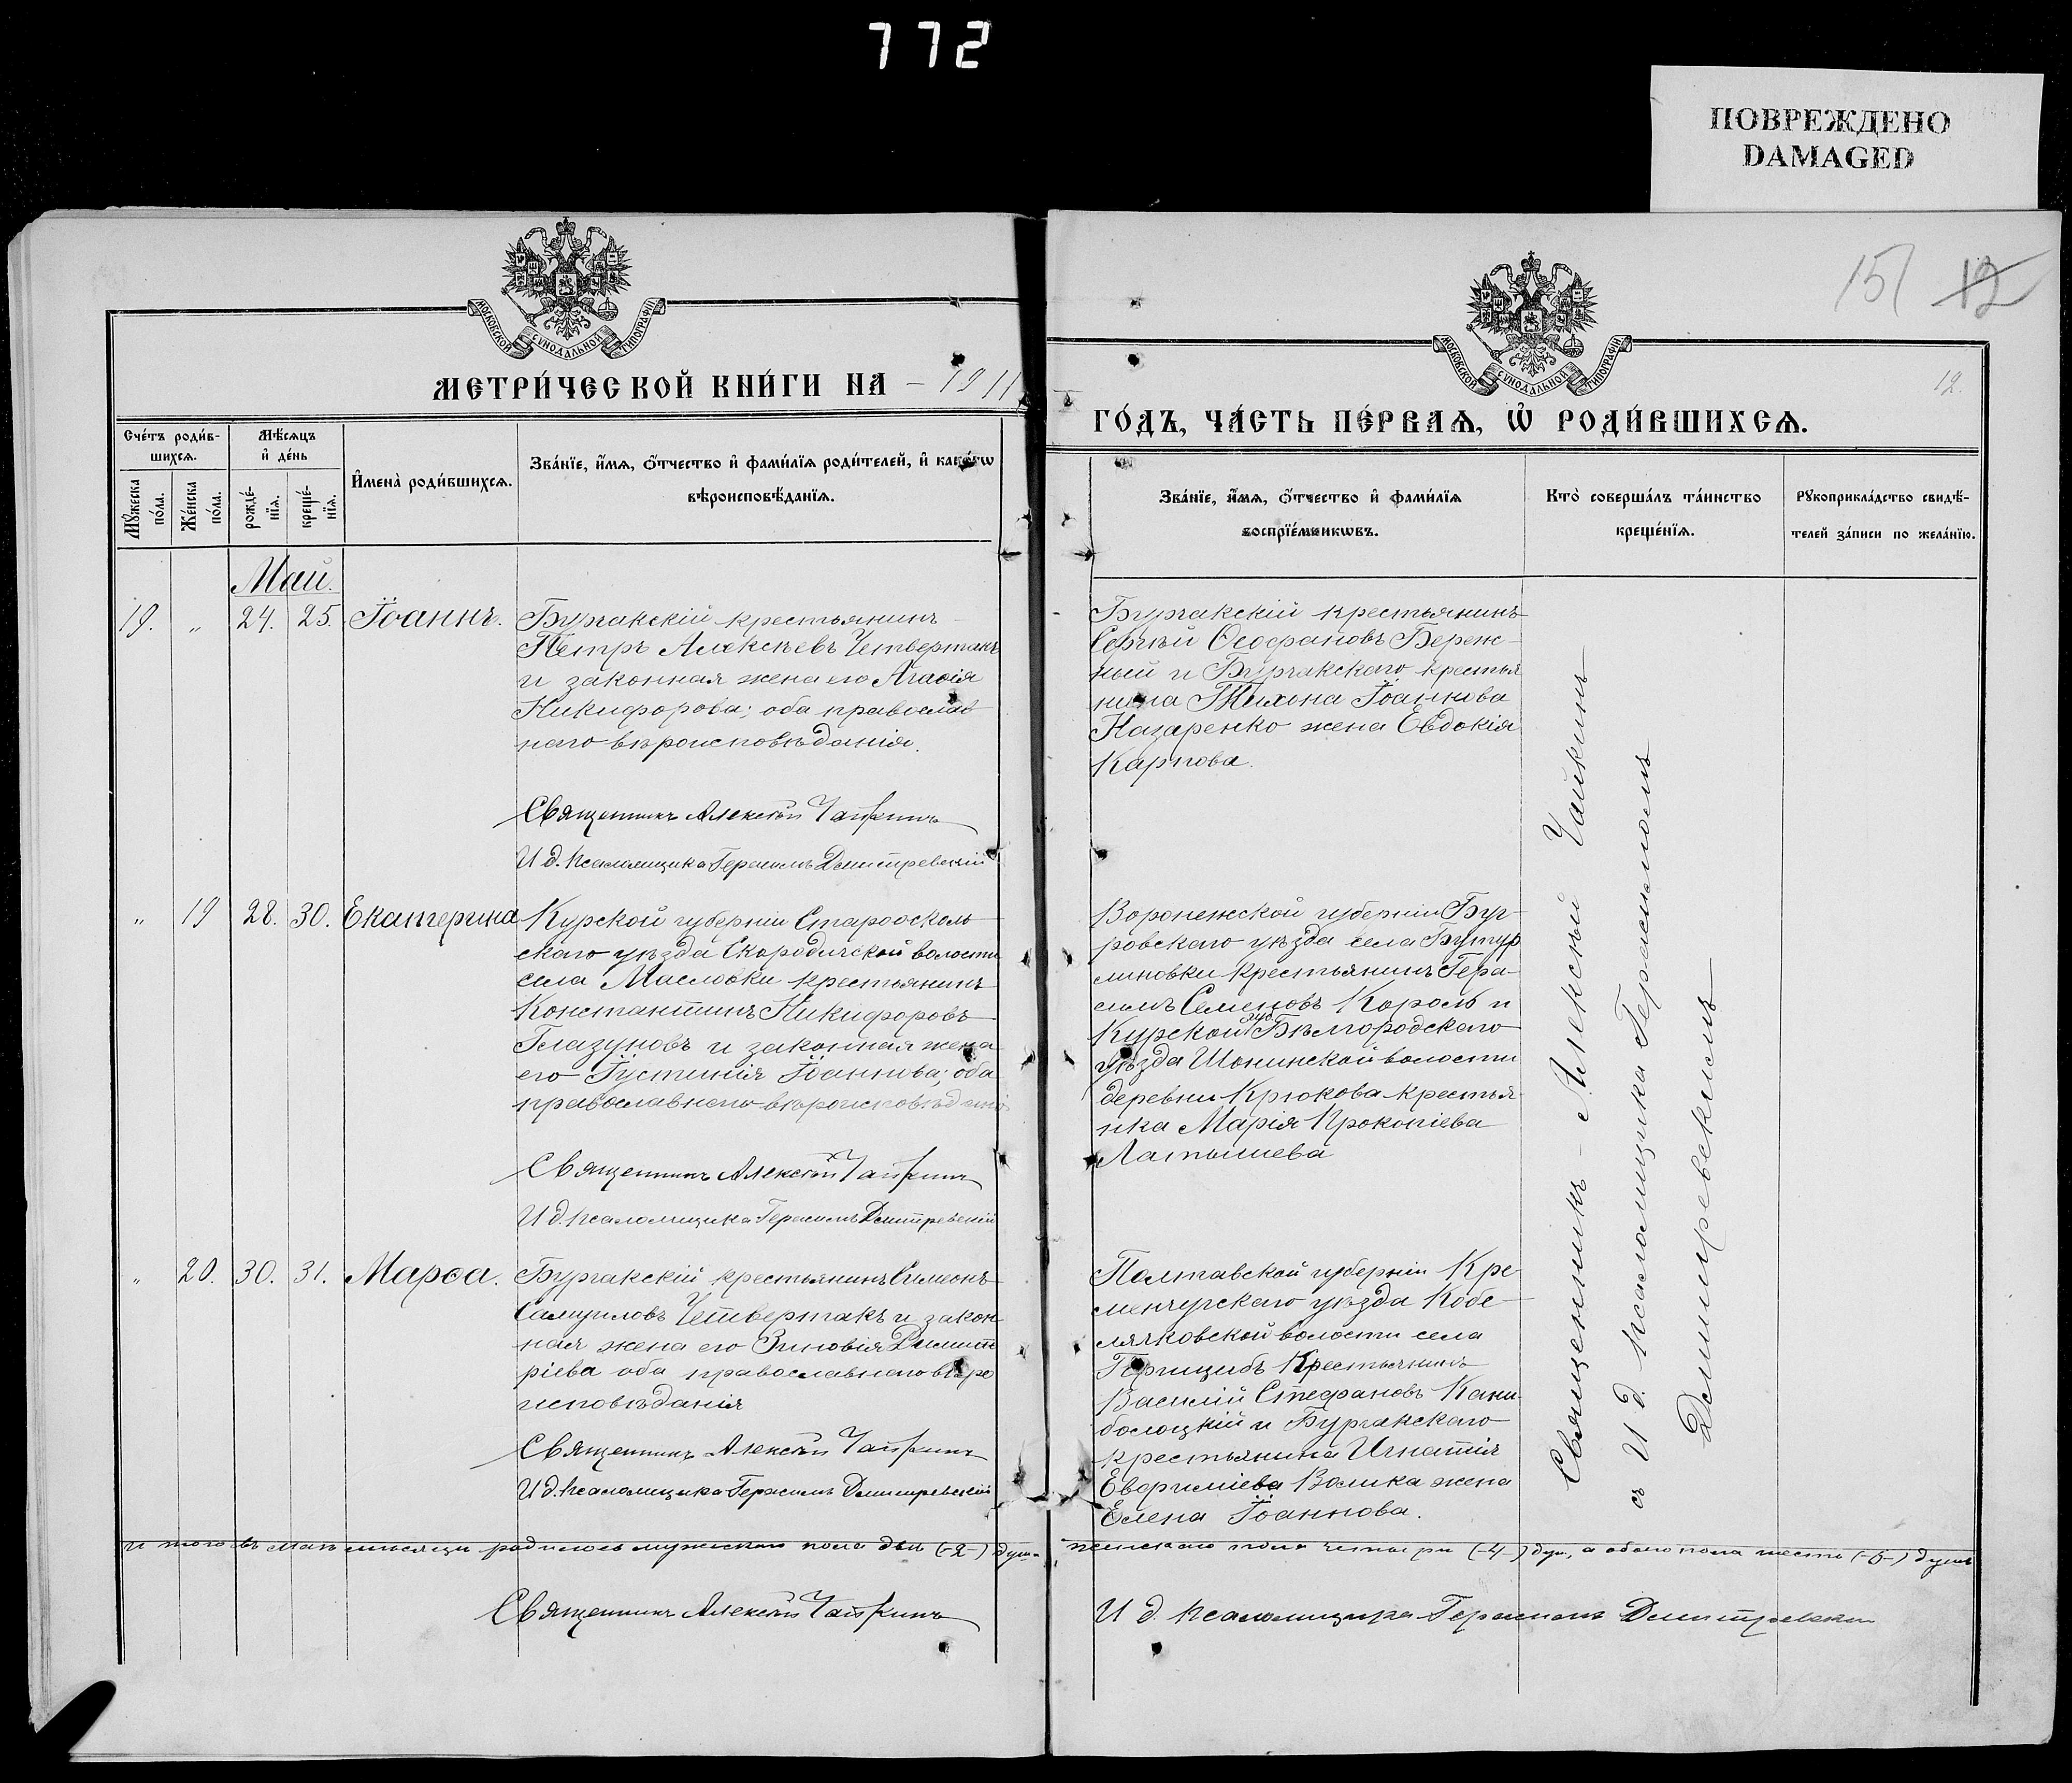 772
ПОВРЕЖДЕНО
DAMAGED
15
12
12.
МОСКОВСКОЙ СѴНОДАЛЬНОЙ ТИПОГРАФІИ
МОСКОВСКОЙ СѴНОДАЛЬНОЙ ТИПОГРАФІИ
МЕТРИ́ЧЕСКОЙ КНИ́ГИ НА – 1911
ГО́ДЪ, ЧА́СТЬ ПЕ́РВАѦ, Ѡ҆ РОДИ́ВШИХСѦ.
Сче́тъ роди́в-
шихсѧ.
Мѣ́сѧцъ
и҆ де́нь
Мꙋ́жеска
по́ла.
Же́нска
по́ла.
рожде́-
нїѧ.
креще́-
нїѧ.
И҆мена̀ роди́вшихсѧ.
Зва́нїе, и҆́мѧ, ѻ҆́тчество и҆ фами́лїѧ роди́телей, и҆ како́гѡ
вѣроисповѣ́данїѧ.
Зва́нїе, и҆́мѧ, ѻ҆́тчество и҆ фами́лїѧ
воспрїе́мникѡвъ.
Кто̀ соверша́лъ та́инство
креще́нїѧ.
Рꙋкоприкла́дство свидѣ́-
телей за́писи по жела́нїю.
Май.
19. " 24. 25. Іоаннъ.
Бургакскій крестьянинъ
Петръ Алексѣевъ Четвертакъ
и законная жена его Агаѳія
Никифорова; оба православ
наго вѣроисповѣданія.
Священникъ Алексѣй Чайкинъ
И д. псаломщика Герасимъ Дмитревскій
Бургакскій крестьянинъ
Сергѣй Ѳеофановъ Береж-
ный и Бургакскаго крестья
нина Тихона Іоаннова
Назаренко жена Евдокія
Карпова.
" 19 28. 30. Екатерина
Курской губерніи Староосколь
скаго уѣзда Скородичской волости
села Масловки крестьянинъ
Константинъ Никифоровъ
Глазуновъ и законная жена
его Іустинія Іоаннова; оба
православнаго вѣроисповѣданія
Священникъ Алексѣй Чайкинъ
И д. псаломщика Герасимъ Дмитревскій
Воронежской губерніи
ровскаго уѣзда села Бутур
линовки крестьянинъ Гера-
симъ Семеновъ Король и
Курской губ. Бѣлгородскаго
уѣзда Шопинской волости
деревни Крюкова крестья
нка Марія Прокопіева
Латышева
" 20. 30. 31. Марѳа.
Бургакскій крестьянинъ Симеонъ
Самуиловъ Четвертакъ и закон
ная жена его Зиновія Димит
ріева оба православнаго вѣро
исповѣданія
Священникъ Алексѣй Чайкинъ
И д. псаломщика Герасимъ Дмитревскій
Полтавской губерніи Кре
менчугскаго уѣзда Кобе
лячковской волости села
крестьянинъ
Василій Стефановъ Кани
болоцкій и Бургакскаго
крестьянина Игнатія
Евфиміева Волика жена
Елена Іоаннова.
Священникъ – Алексѣй Чайкинъ
съ И д. псаломщика Герасимомъ
Дмитревскимъ
И того въ маѣ мѣсяцѣ родилось мужескаго пола два (-2-) душ. женскаго пола четыри (-4-) душ, а обоего пола шесть (-6-) душъ
Священникъ Алексѣй Чайкинъ
И д. псаломщика Герасимъ Дмитревскій